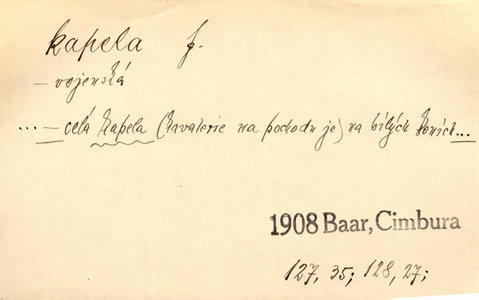 kapela f.
– vojenská
... – celá kapela (kavalerie na pochodu je) na bílých koních ...
1908 Baar, Cimbura
127, 35; 128, 27;